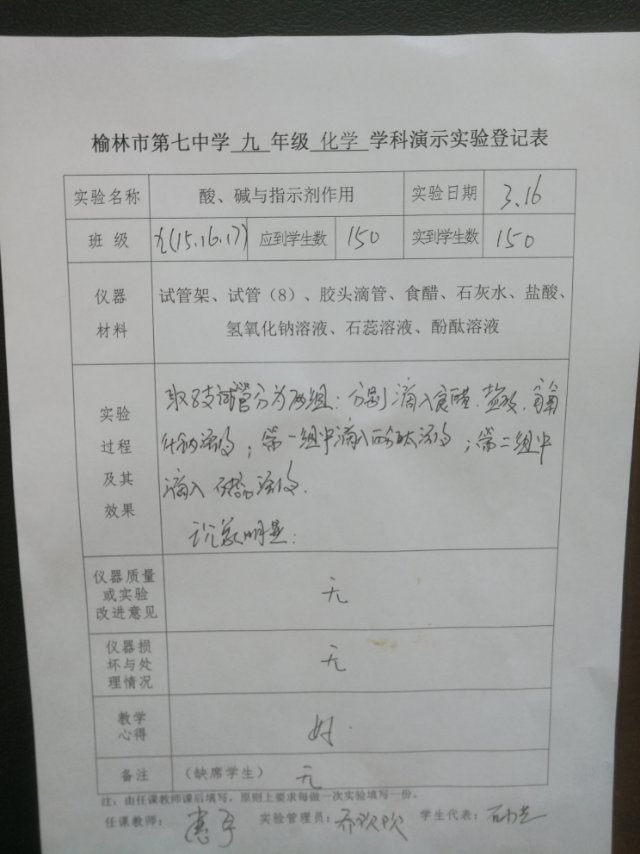 榆林市第七中学 九 年级 化学 学科演示实验登记表
实验名称 酸、碱与指示剂作用 实验日期 3.16
班 级 九(15.16.17) 应到学生数 150 实到学生数 150
仪器 试管架、试管（8）、胶头滴管、食醋、石灰水、盐酸、
材料 氢氧化钠溶液、石蕊溶液、酚酞溶液
实验 取8支试管分为两组：分别滴入食醋.盐酸.氢氧
过程 化钠溶液；第一组中滴入酚酞溶液；第二组中
及其 滴入石蕊溶液.
效果 现象明显.
仪器质量
或实验 无
改进意见
仪器损
坏与处 无
理情况
教学
心得 好.
备注 （缺席学生） 无
注：由任课教师课后填写，原则上要求每做一次实验填写一份。
任课教师： 实验管理员：乔欢欢 学生代表：